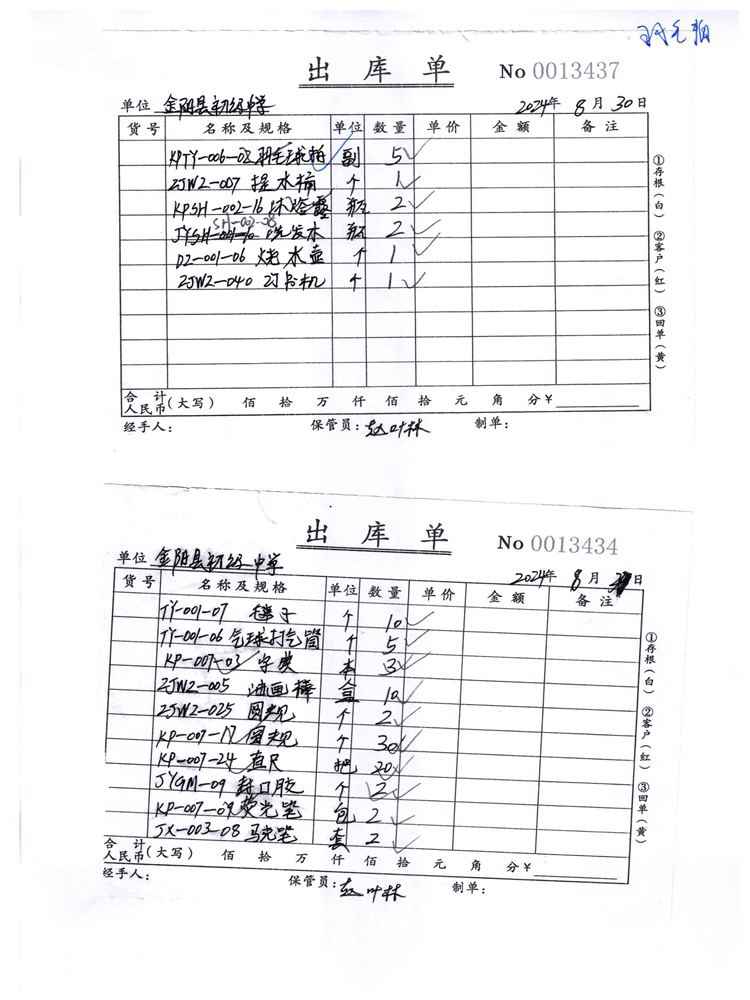 出库单 No 0013437
单位 金阳县初级中学 2024年 8月 30日
货号 名称及规格 单位 数量 单价 金额 备注
KPTY-006-08 羽毛球拍 副 5
ZJWZ-007 提水桶 个 1
KPSH-002-16 沐浴露 瓶 2
SH-002-08
JYSH-001-10 洗发水 瓶 2
DZ-001-06 烧水壶 个 1
ZJWZ-040 个 1
合计
人民币(大写) 佰 拾 万 仟 佰 拾 元 角 分 ¥
经手人: 保管员: 赵叶林 制单:
①存根(白) ②客户(红) ③回单(黄)
出库单 No 0013434
单位 金阳县初级中学 2024年 8月 日
货号 名称及规格 单位 数量 单价 金额 备注
TY-001-07 个 10
TY-001-06 气球打气筒 个 5
KP-007-03 字典 本 3
ZJWZ-005 油画棒 盒 10
ZJWZ-025 圆规 个 2
KP-007-17 圆规 个 30
KP-007-24 直尺 把 20
JYGM-09 封口胶 个 2
KP-007-09 荧光笔 包 2
JX-003-08 马克笔 套 2
合计
人民币(大写) 佰 拾 万 仟 佰 拾 元 角 分 ¥
经手人: 保管员: 赵叶林 制单:
①存根(白) ②客户(红) ③回单(黄)